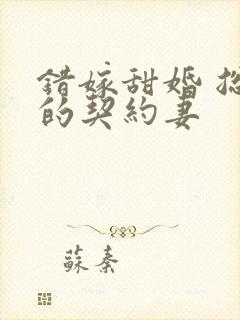 錯嫁甜婚
的契約妻
蘇秦